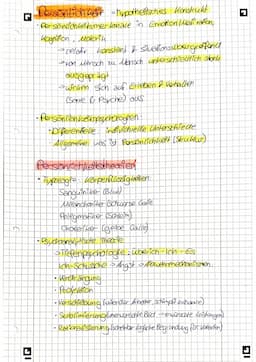 Persönlichkeit = hypothetisches Konstrukt
• Persönlichkeitsmerkmale in Emotion, Motivation,
Kognition, Motorik
→ relativ konstant & situationsübergreifend
→ von Mensch zu Mensch unterschiedlich stark
ausgeprägt
→ wirken sich auf Erleben & Verhalten
(Soma & Psyche) aus
• Persönlichkeitspsychologien:
Differentielle: individuelle Unterschiede
Allgemeine: was ist Persönlichkeit (Struktur)
Persönlichkeitstheorien
• Typologie: Körperflüssigkeiten
Sanguiniker (Blut)
Melancholiker (schwarze Galle)
Phlegmatiker (Schleim)
Choleriker (gelbe Galle)
• Psychoanalytische Theorie
→ Tiefenpsychologie: Überich - Ich - Es
Ich-Schwäche → Angst → Abwehrmechanismen
• Verdrängung
• Projektion
• Verschiebung
• Sublimierung
• Rationalisierung